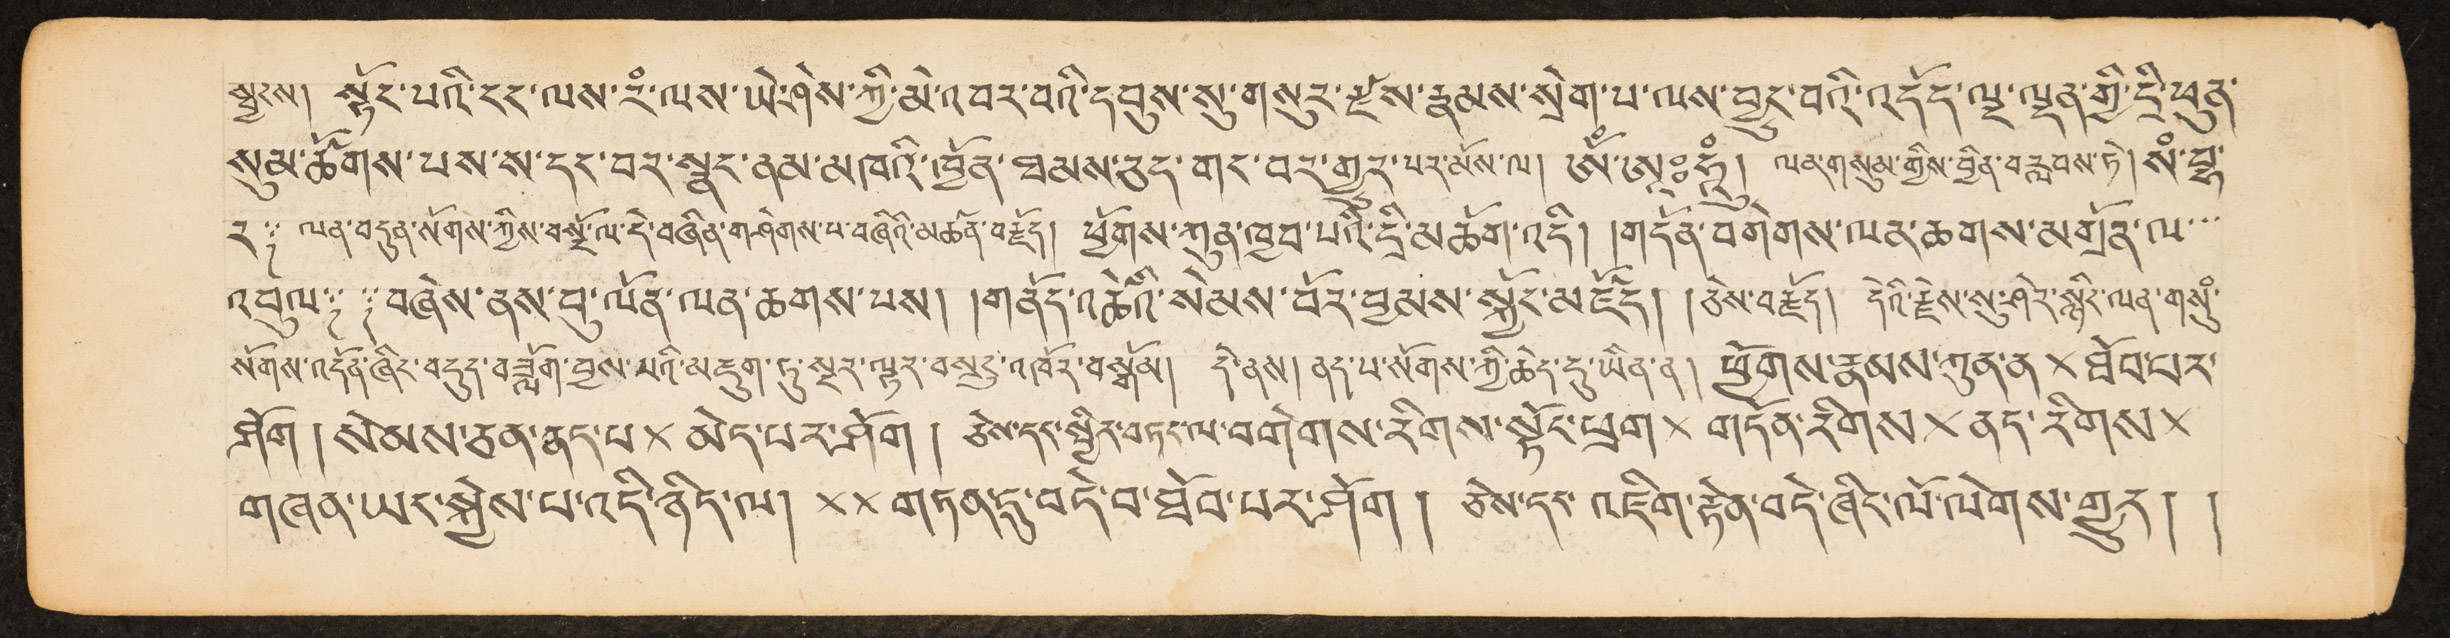 སྦྱངས། སྟོང་པའི་ངང་ལས་རཾ་ལས་ཡེ་ཤེས་ཀྱི་མེ་འབར་བའི་དབུས་སུ་གསུར་རྫས་རྣམས་སྲེག་པ་ལས་བྱུང་བའི་འདོད་ལྔ་ལྡན་གྱི་དྲི་ཕུན་
སུམ་ཚོགས་པས་ས་དང་བར་སྣང་ནམ་མཁའི་ཁྱོན་ཐམས་ཅད་གང་བར་གྱུར་པར་མོས་ལ། ༀ་ཨཱཿཧཱུྃ། ལན་གསུམ་གྱིས་བྱིན་བརླབས་ཏེ། སཾ་བྷ་
ར༔ ལན་བདུན་སོགས་ཀྱིས་བསྔོ་ལ་དེ་བཞིན་གཤེགས་པ་བཞིའི་མཚན་བརྗོད། ཕྱོགས་ཀུན་ཁྱབ་པའི་དྲི་མཆོག་འདི། །གདོན་བགེགས་ལན་ཆགས་མགྲོན་ལ་
འབུལ༔ བཞེས་ནས་བུ་ལོན་ལན་ཆགས་པས། །གནོད་འཚེའི་སེམས་བོར་བྱམས་སྐྱོང་མཛོད། །ཅེས་བརྗོད། དེའི་རྗེས་སུ་ཤེར་སྙིང་ལན་གསུཾ་
སོགས་འདོན་ཞིང་བདུད་བཟློག་བྱས་པའི་མཇུག་ཏུ་སྔར་ལྟར་བསྲུང་འཁོར་བསྒོམ། དེ་ནས། ནད་པ་སོགས་ཀྱི་ཆེད་དུ་ཡིན་ན། ཕྱོགས་རྣམས་ཀུན་ན་× ཐོབ་པར་
ཤོག །སེམས་ཅན་ནད་པ་× མེད་པར་ཤོག །ཅེས་དང་སྤྱིར་བཏང་ལ་བགེགས་རིགས་སྟོང་ཕྲག་× གདོན་རིགས་× ནད་རིགས་×
གཞན་ཡང་སྐྱེས་པ་འདི་ཉིད་ལ། ×× གཏན་དུ་བདེ་བ་ཐོབ་པར་ཤོག །ཅེས་དང་འཇིག་རྟེན་བདེ་ཞིང་ལོ་ལེགས་གྱུར། །